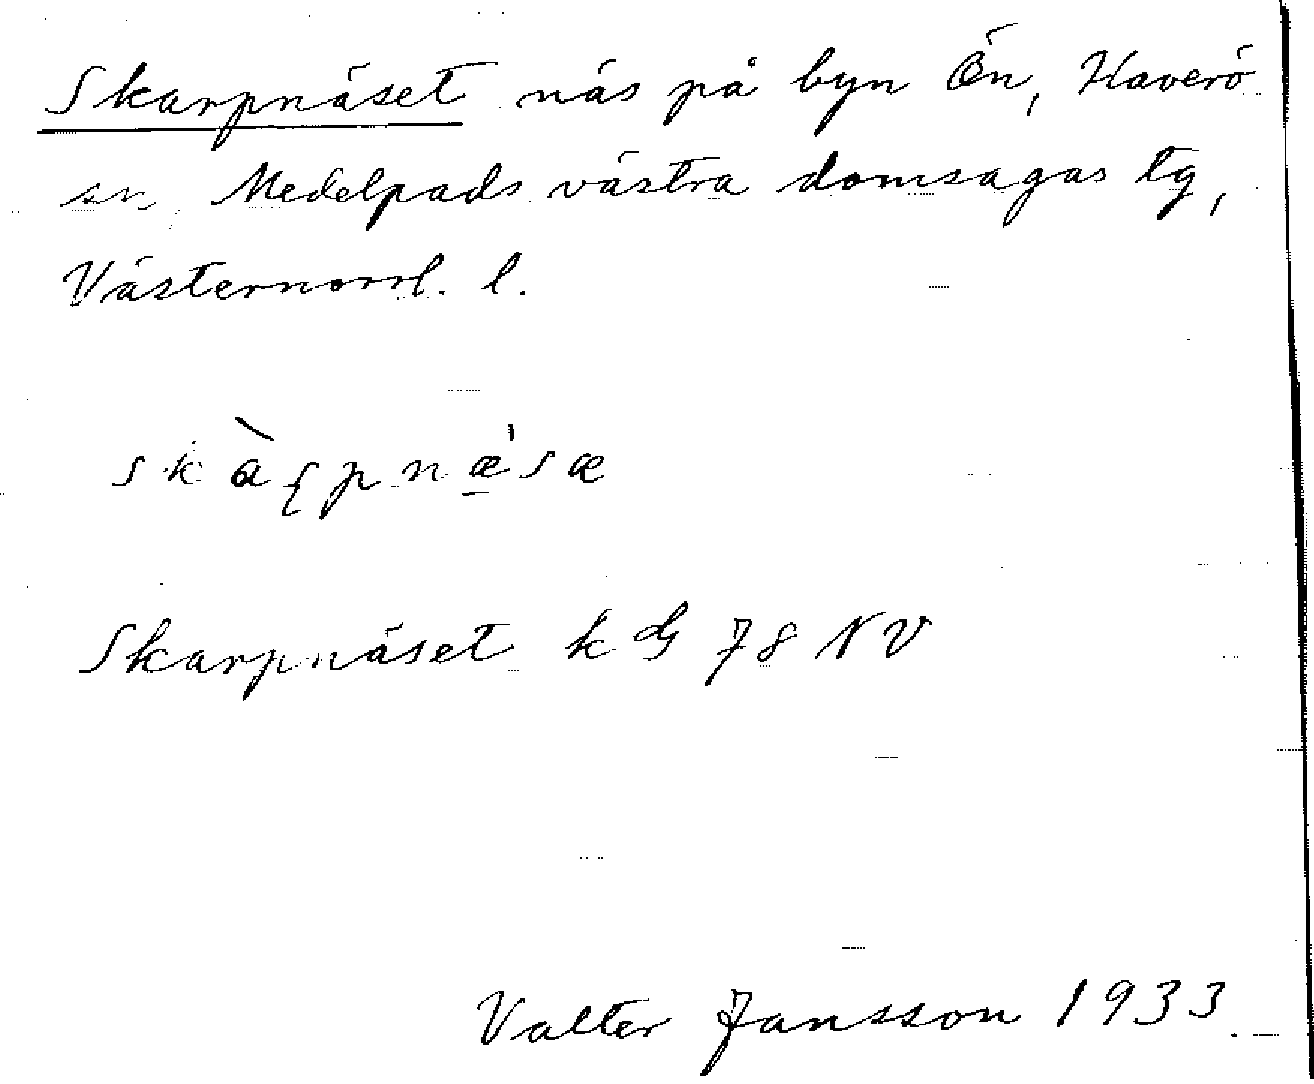 Skarpnäset näs på byn Ön, Haverö
sn, Medelpads västra domsagas tg,
Västernorrl. l.
skàrpnæ̠'sæ
Skarpnäset k G 78 NV
Valter Jansson 1933.